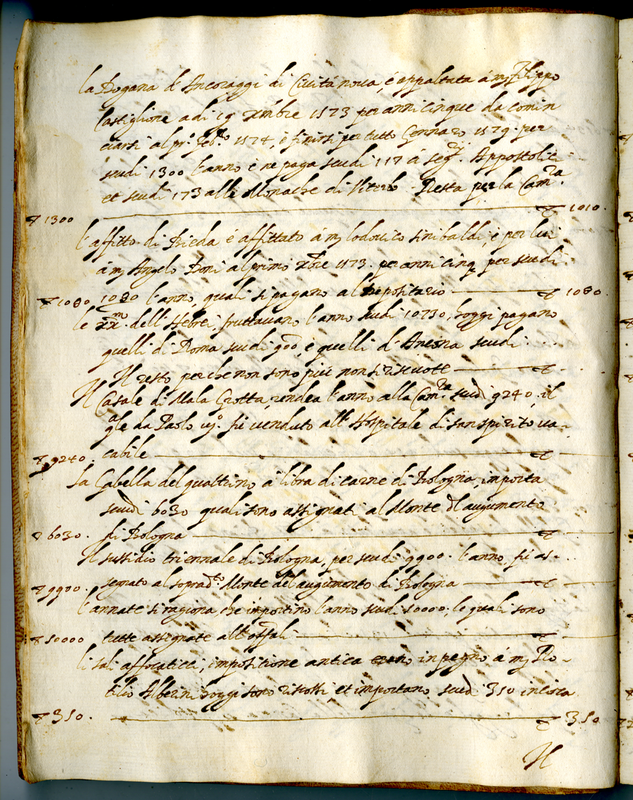 la Dogana d'Ancoraggi di Civita nova, è appaltata à mʳ Filippo
Castiglione a di 19 Xmbre 1573 per anni cinque da comin
ciarsi al pr.º febʳº 1574, è finirsi per tutto Gennaro 1579. per
scudi 1300 l'anno è ne paga scudi 117 à Segʳij Appostolici
et scudi 173 alle Monache di Viterbo. Resta per la Camʳᵃ
▽ 1300 ▽ 1010.
l'affitto di Bieda è affittato à mʳ lodovico sinibaldi, è per lui
à mʳ Angelo Doni al primo Xbre 1573. per anni cinqȝ per scudi
▽ 1080. 1080 l'anno, quali si pagano al Depositario ▽ 1080.
le XXᵐᵉ dell'Hebrei fruttavano l'anno scudi 10730, hoggi pagano
quelli di Roma scudi 900, è quelli d'Ancona scudi
Il resto perche non sono più non si riscuote ▽
Il Casale di Mala Grotta, rendea l'anno alla Camʳᵃ scudi 9240, il
qle da Paolo iijº. fù venduto all'Hospitale di san spirito va-
▽ 9240. cabile ▽
La Gabella del quattrino à libra di carne di Bologna, importa
scudi 6030 quali sono assignati al Monte dl augumento
▽ 6030. di Bologna ▽
Il sussidio triennale di Bologna, per scudi 9900. l'anno, fù as-
▽ 9900. segnato al sopradᵗᵒ Monte del augumento di Bologna ▽
l'annate si ragiona, che importino l'anno scudi 10000, le quali sono
▽ 10000 tutte assegnate all' ▽
li sali affocatici, impositione antica erano in pegno à mʳ Ru-
tilio Alberini hoggi sono riscossi et importano scudi 310 incirca
▽ 310. ▽ 310
Il